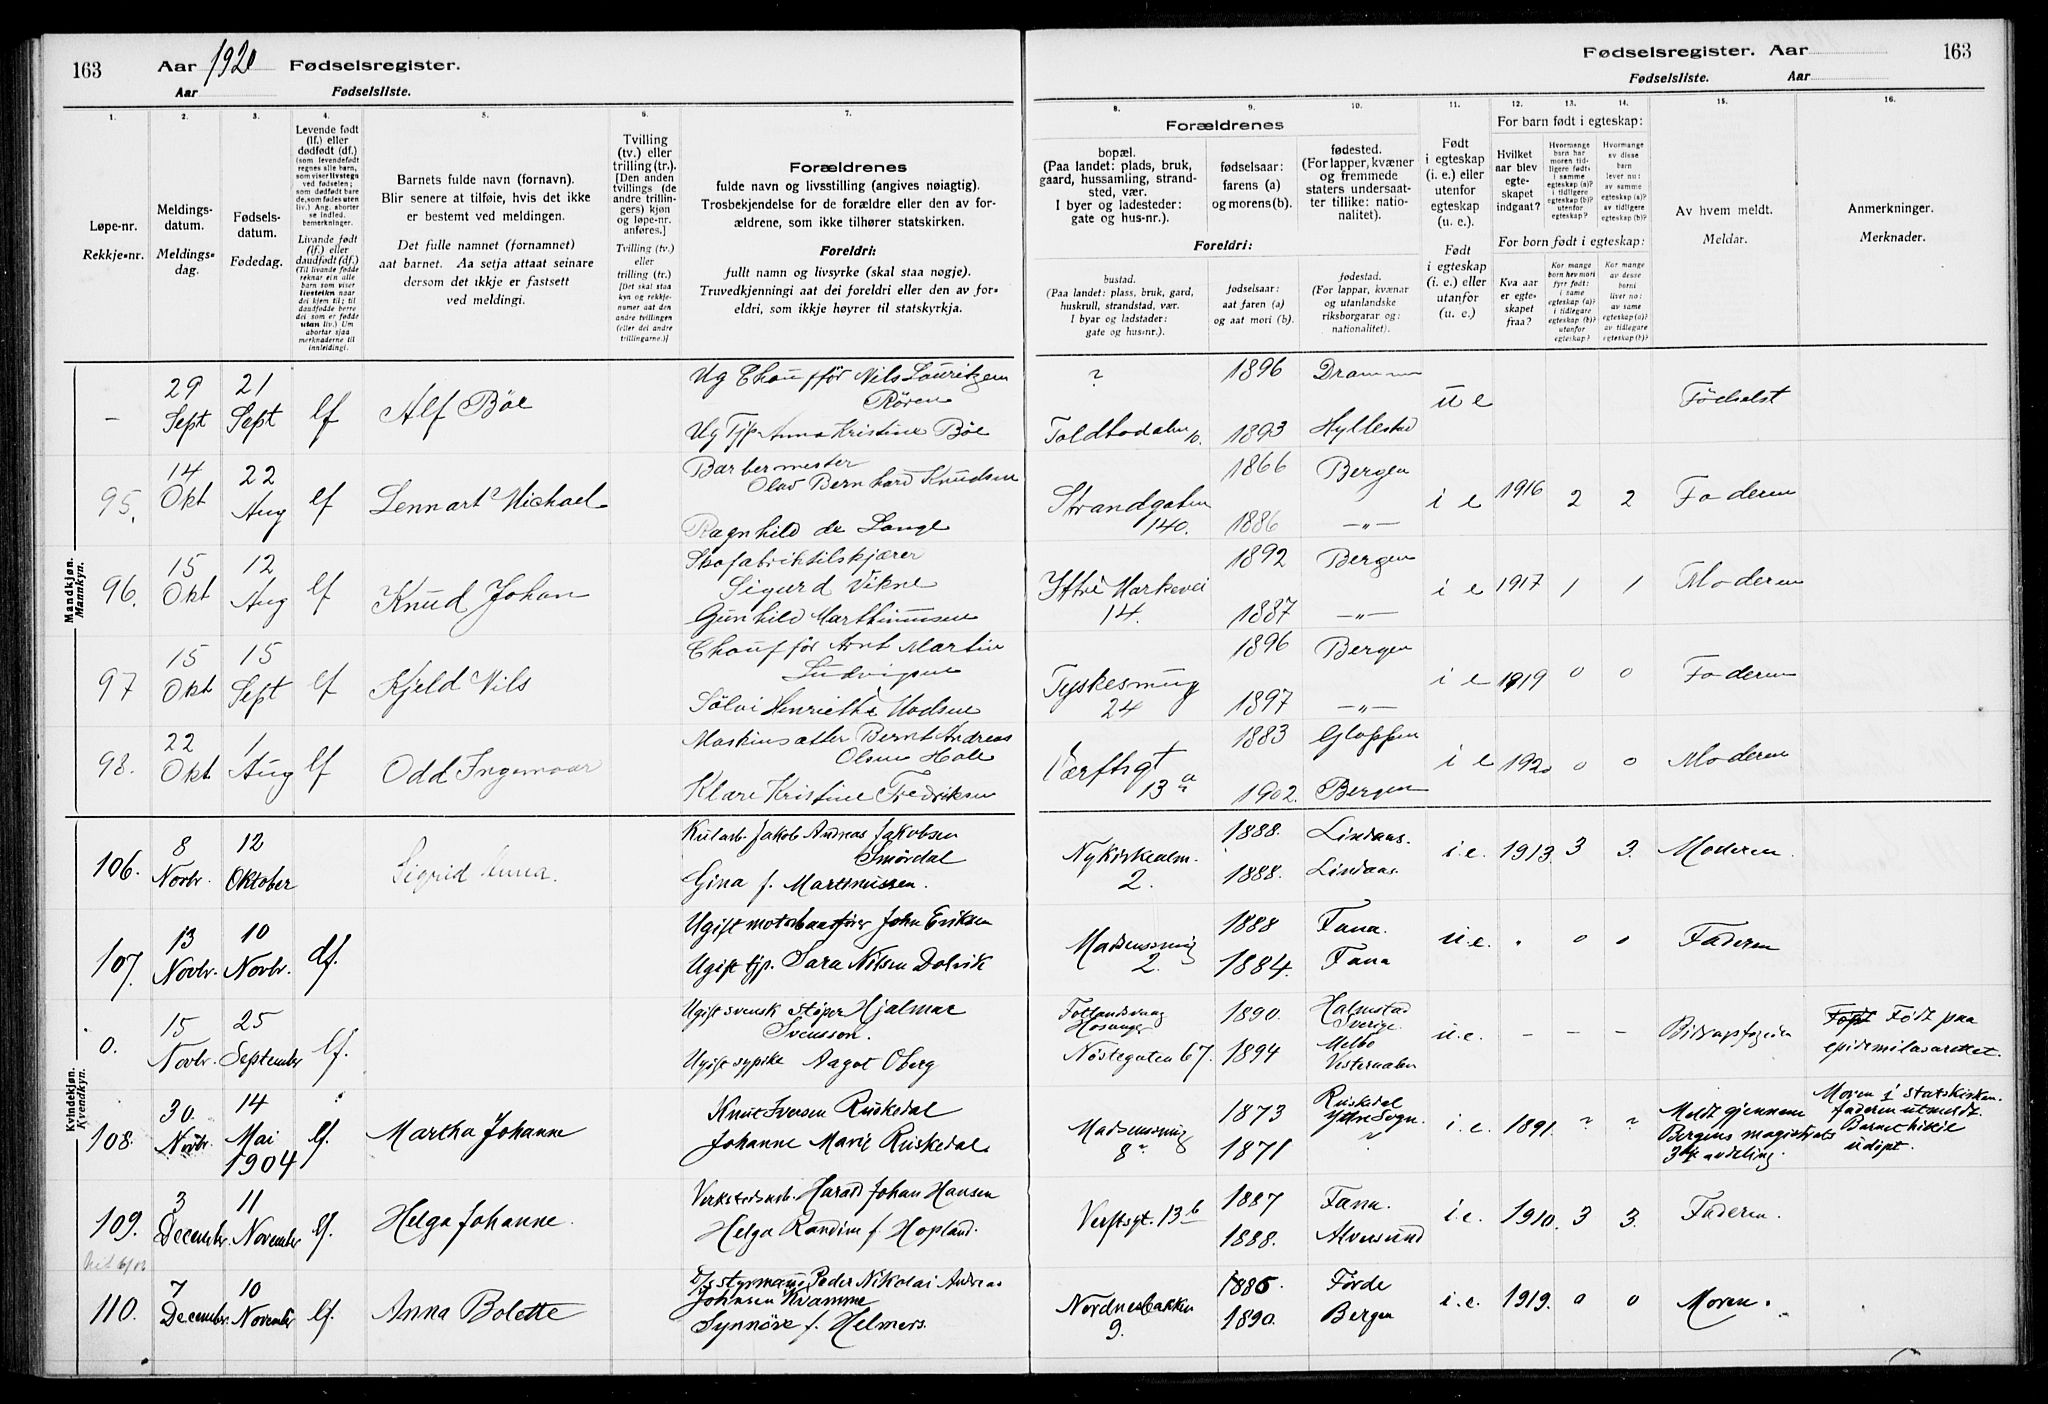 163 Aar 1920 Fødselsregister.
Aar Fødselsliste.
Fødselsregister. Aar 163
Fødselsliste. Aar
1. 2. 3. 4. 5. 6. 7. 8. 9. 10. 11. 12. 13. 14. 15. 16.
Løpe-nr.
Rekkje-nr.
Meldings-
datum.
Meldings-
dag.
Fødsels-
datum.
Fødedag.
Levende født
(lf.) eller
dødfødt (df.)
(som levendefødt
regnes alle barn,
som viser livstegn
ved fødselen;
som dødfødt bare
de, som fødes uten
liv.) Ang. aborter
se indled.
bemerkninger.
Livande født
(lf.) eller
daudfødt (df.)
(Til livande fødde
reknar ein alle
barn som viser
livsteikn naar
dei kjem til; til
daudfødde berre
dei som er fødde
utan liv.) Um
abortar sjaa
merknaderne til
innleidingi.
Barnets fulde navn (fornavn).
Blir senere at tilføie, hvis det ikke
er bestemt ved meldingen.
Det fulle namnet (fornamnet)
aat barnet. Aa setja attaat seinare
dersom det ikkje er fastsett
ved meldingi.
Tvilling
(tv.) eller
trilling (tr.).
[Den anden
tvillings (de
andre trillin-
gers) kjøn
og løpe-nr.
anføres.]
Tvilling (tv.)
eller
trilling (tr.)
[Det skal staa
kyn og rekkje-
numer aat den
andre tvillingen
(eller dei andre
trillingarne.)]
Forældrenes
fulde navn og livsstilling (angives nøiagtig).
Trosbekjendelse for de forældre eller den av for-
ældrene, som ikke tilhører statskirken.
Foreldri:
fullt namn og livsyrke (skal staa nøgje).
Truvedkjenningi aat dei foreldri eller den av for-
eldri, som ikkje høyrer til statskyrkja.
Forældrenes
bopæl.
(Paa landet: plads, bruk,
gaard, hussamling, strand-
sted, vær.
I byer og ladesteder:
gate og hus-nr.).
fødselsaar:
farens (a)
og morens (b).
fødested.
(For lapper, kvæner
og fremmede
staters undersaat-
ter tillike: natio-
nalitet).
Foreldri:
bustad.
(Paa landet: plass, bruk, gard,
huskrull, strandstad, vær.
I byar og ladstader:
gate og husnr.).
fødselsaar:
aat faren (a)
og aat mori (b).
fødestad.
(For lappar, kvænar
og utanlandske
riksborgarar og:
nationalitet).
Født
i egteskap
(i. e.) eller
utenfor
egteskap
(u. e.).
Født
i egteskap
(i. e.) eller
utanfor
(u. e.)
For barn født i egteskap:
Hvilket
aar blev
egte-
skapet
indgaat?
Hvormange
barn har
moren tid-
ligere født:
i samme
egteskap (a)?
i tidligere
egteskap (b)?
utenfor
egteskap?
Hvormange
av disse
barn
lever nu:
av samme
egteskap (a)?
av tidligere
egteskap (b)?
For born født i egteskap:
Kva aar
er egte-
skapet
fraa?
Kor mange
born hev mori
fyrr født:
i same
egteskap (a)?
i tidlegare
egteskap (b)?
utanfor
egteskap?
Kor mange
av desse
borni
liver nu:
av same
egteskap (a)?
av tidlegare
egteskap (b)?
Av hvem meldt.
Meldar.
Anmerkninger.
Merknader.
Mandkjøn.
Mannkyn.
– 29 Sept 21 Sept lf Alf Böe
Ug Chauffør Nils Lauritzen
Røren
Ug Tjp Anna Kristine Böe
? Toldbodalm 10. 1896 1893 Drammen Hyllestad u e Fødselst
95. 14 Okt 22 Aug lf Lennart Michael
Barbermester
Olav Bernhard Knudsen
Ragnhild de Lange
Strandgaten 140. 1866 1886 Bergen –"– i e 1916 2 2 Faderen
96. 15 Okt 12 Aug lf Knud Johan
Skofabriktilskjærer
Sigurd Vikne
Gunhild Marthinussen
Ytre Markevei 14. 1892 1887 Bergen –"– i e 1917 1 1 Moderen
97 15 Okt 15 Sept lf Kjeld Nils
Chauffør Arnt Martin
Ludvigsen
Sølvi Henriette Madsen
Tyskesmug 24 1896 1897 Bergen –"– i e 1919 0 0 Faderen
98. 22 Okt 1 Aug lf Odd Ingemar
Maskinsætter Bernt Andreas
Olsen Holle
Klara Kristine Fredriksen
Værftsgt 13 a 1883 1902. Gloppen Bergen i e 1920 0 0 Moderen
Kvindekjøn.
Kvendkyn.
106. 8 Novbr. 12 Oktober Sigrid Anna.
Kularb. Jakob Andreas Jakobsen
Smørdal
Gina f. Martinussen.
Nykirkealm. 2. 1888. 1888. Lindaas. Lindaas. i.e. 1913. 3 3. Moderen.
107. 13 Novbr. 10 Novbr. df.
Ugift motorbaatfører John Eriksen
Ugift tjp. Sara Nilsen Dolvik
Madsenssmug 2. 1888 1884. Fana. Fana u.e. 0 0 Faderen
0. 15 Novbr. 25 September lf.
Ugift svensk støper Hjalmar
Svensson.
Ugift sypike Aagot Oberg
Hosanger
Nøstegaten 67. 1890. 1894 Halmstad Sverige. Melbo Vesteraalen u.e. – – – Bidragsfogden
Født paa
epidemilasarettet.
108. 30. Novbr. 14 Mai 1904 lf. Martha Johanne
Knut Iversen Ruskedal
Johanne Marie Ruskedal
Madsenssmug 8 a 1873 1871 Ruskedal Ytre Sogn. ? i.e. 1891. ? ?
Meldt gjennem
Bergens magistrats
3dje avdeling.
Moren i statskirken.
faderen utmeldt
Barnet ikke
údøpt.
109. 3 December 11 November lf. Helga Johanne.
Verkstedsarb. Harald Johan Hansen
Helga Randine f. Hopland.
Verftsgt. 13 b 1887 1888. Fana. Alversund i.e. 1910. 3 3. Faderen.
110. 7 December 10 November lf. Anna Bolette
D/S styrmand Peder Nikolai Andreas
Johnsen Kvamme
Synnöve f. Helmers.
Nordnesbakken 9. 1885 1890. Førde Bergen i.e. 1919. 0 0 Moren.